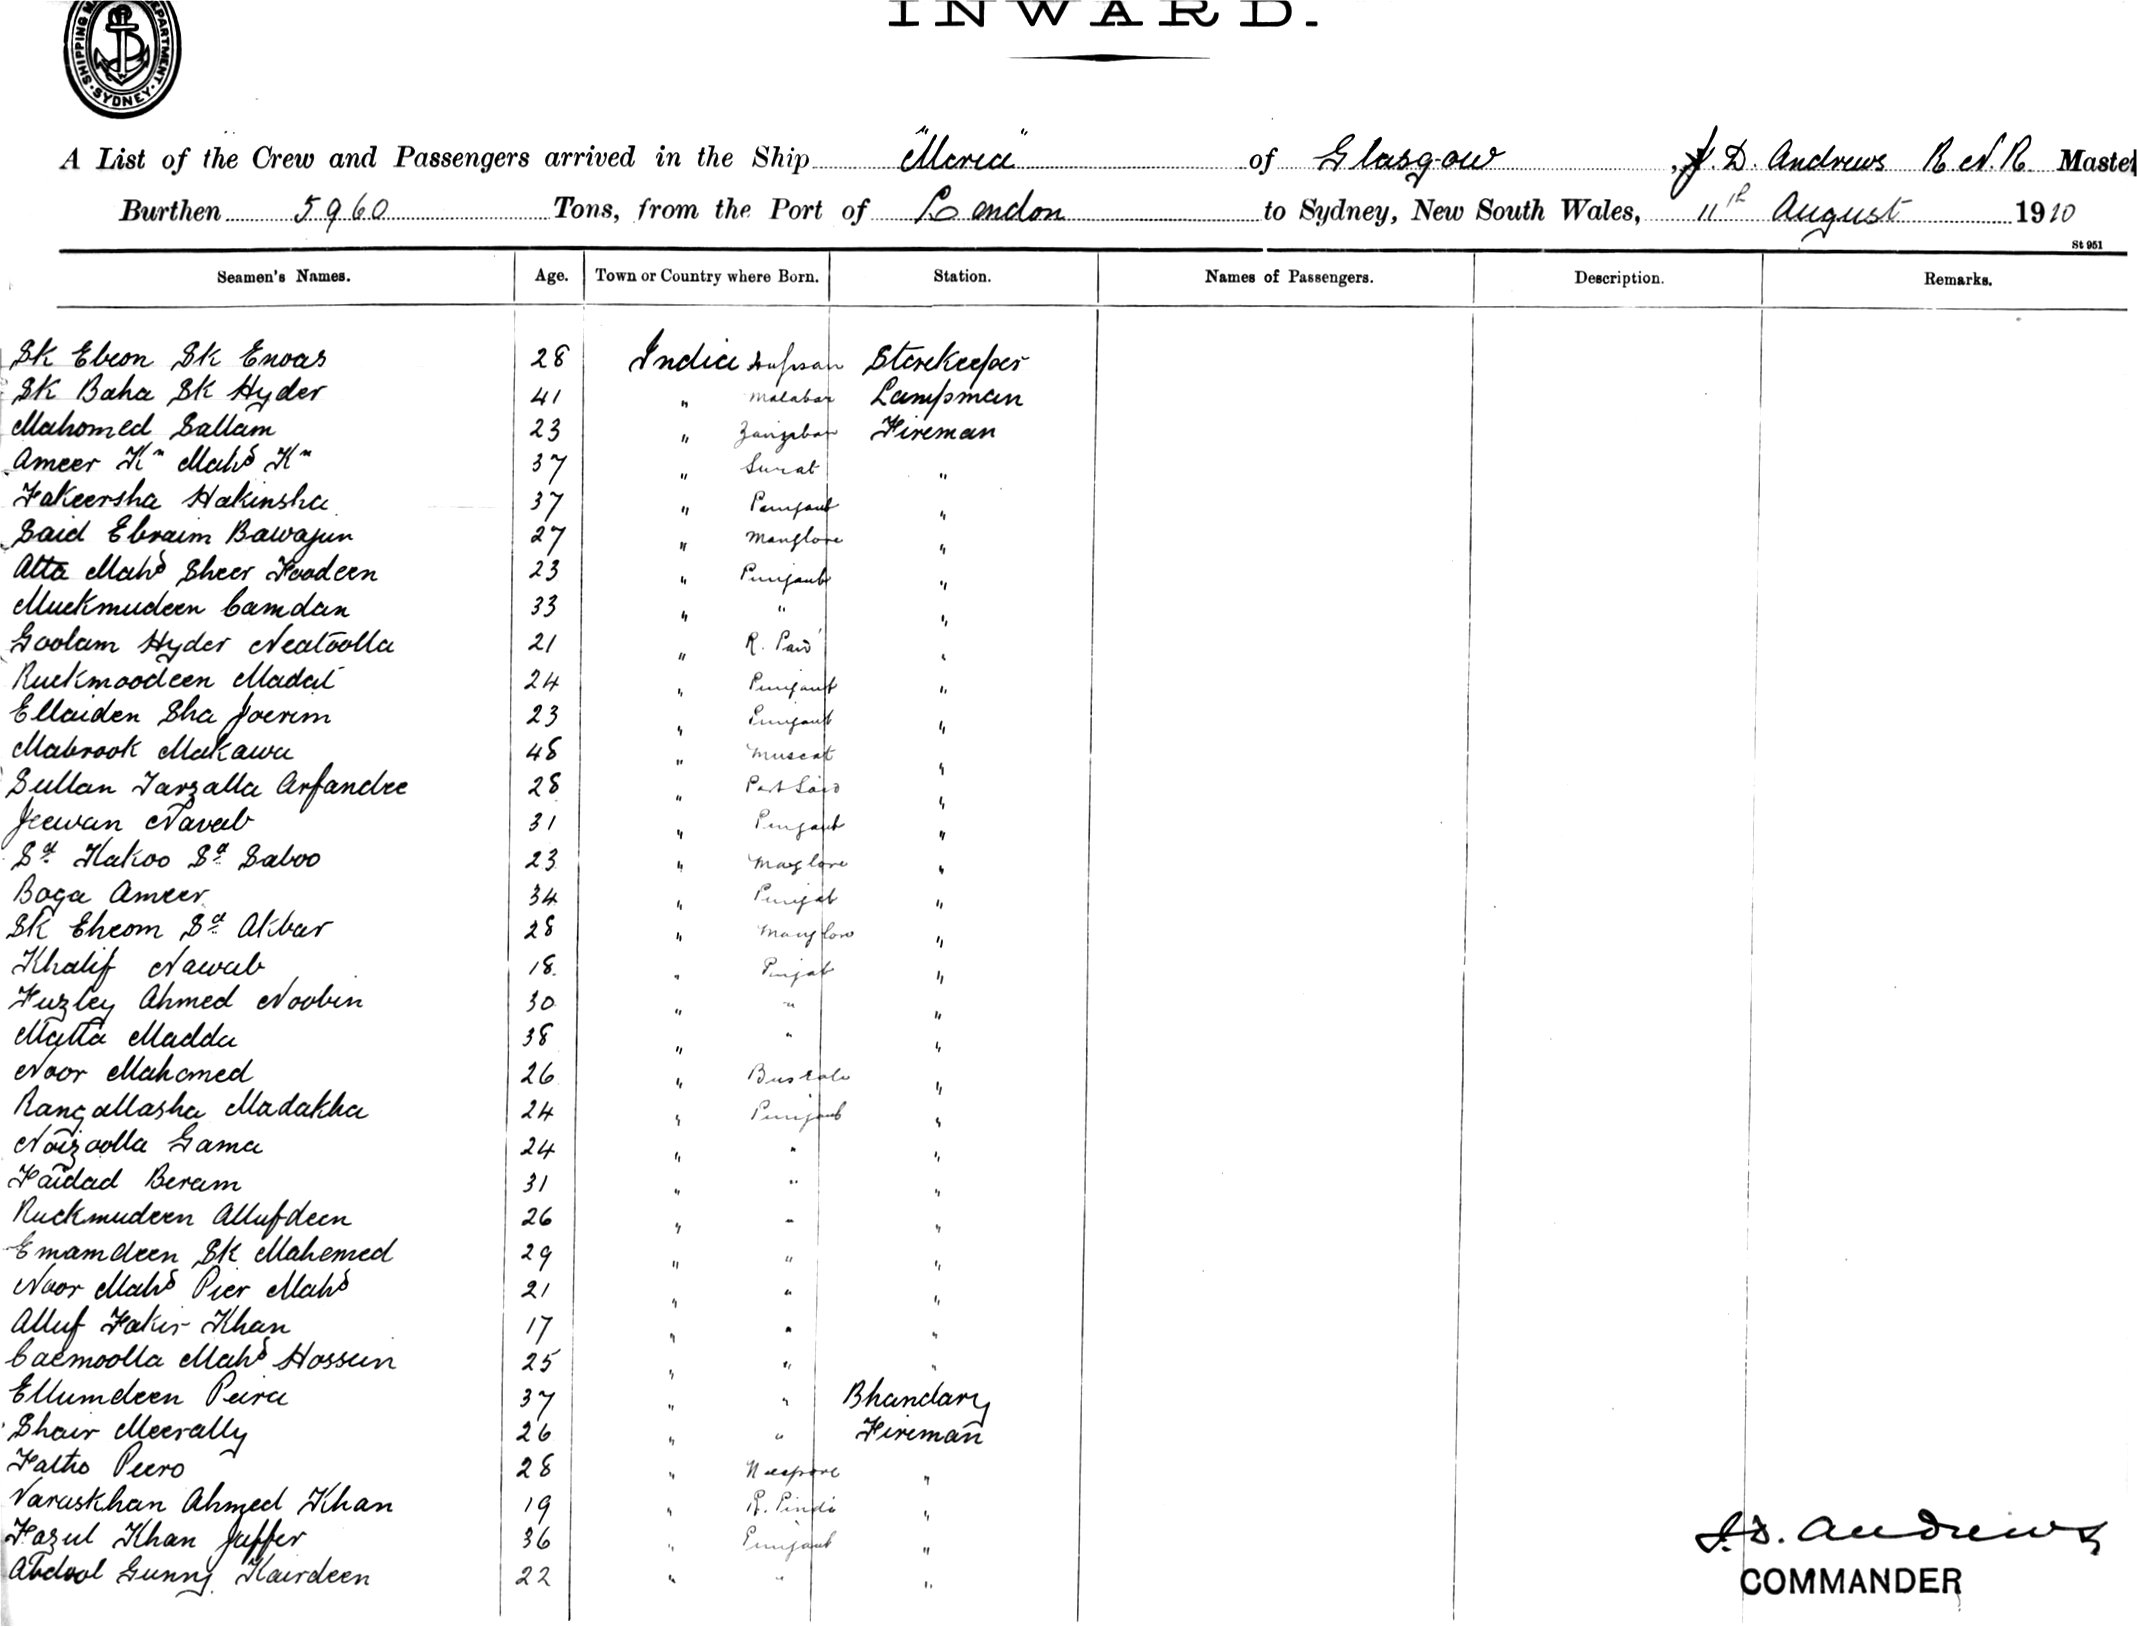 INWARD.
SHIPPING DEPARTMENT SYDNEY
A List of the Crew and Passengers arrived in the Ship "Moria" of Glasgow, J. D. Andrews R.N.R. Master
Burthen 5960 Tons, from the Port of London to Sydney, New South Wales, 11th August 1910
St 951
Seamen's Names. Age. Town or Country where Born. Station. Names of Passengers. Description. Remarks.
SK Ebeon SK Enoas 28 India Storekeeper
SK Baha SK Hyder 41 " Malabar Lampman
Mahomed Sallam 23 " Zanzebar Fireman
Ameer Kn Mahd Kn 37 " Surat "
Fakeersha Hakinsha 37 " Punjaub "
Said Ebraim Bawajun 27 " Manglore "
Atta Mahd Sheer Foodeen 23 " Punjaub "
Muckmudeen Camdan 33 " " "
Goolam Hyder Neatoolla 21 " R. "
Ruckmoodeen Madat 24 " Punjaub "
Ellaiden Sha Joerim 23 " Punjaub "
Mabrook Makawa 48 " Muscat "
Sullan Tarzalla Arfandee 28 " Port Said "
Jeewan Navab 31 " Punjaub "
Sd Kakoo Sd Saboo 23 " Manglore "
Boga Ameer 34 " Punjab "
SK Eheom Sd Akbar 28 " Manglore "
Khalif Nawab 18 " Punjab "
Fuzley Ahmed Noobin 30 " " "
Matta Madda 38 " " "
Noor Mahomed 26 " "
Rangallasha Madakha 24 " Punjaub "
Noizoolla Gama 24 " " "
Faidad Beram 31 " " "
Ruckmudeen Allufdeen 26 " " "
Emamdeen SK Mahemed 29 " " "
Noor Mahd Pier Mahd 21 " " "
Alluf Fakir Khan 17 " " "
Caemoolla Mahd Hossein 25 " " "
Ellumdeen Peira 37 " " Bhandary
Shair Meerally 26 " " Fireman
Fatho Peero 28 " "
Naruskhan Ahmed Khan 19 " R. Pindi "
Fazul Khan Jaffer 36 " Punjaub "
Abdool Gunny Kairdeen 22 " " "
J. D. Andrews
COMMANDER